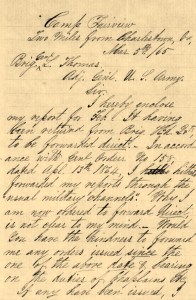 Camp Fairview
Two Miles from Charlestown, Va
Mar 5th/65
Brig Genl L. Thomas.
Adj. Genl. U. S. Army.
Sir.
I hereby enclose
my report for Feb. It having
been returned from Brig Hd Qrs
to be forwarded direct. In accord
ance with Genl Orders No 158.
dated Apl. 13th 1864, I hitherto
forwarded my reports through the
usual military channels. Why I
am now ordered to forward direct
is not clear to my mind. Would
you have the kindness to forward
me any orders issued since the
one of the above date & bearing
on the duties of Chaplains &c
if any have been issued,